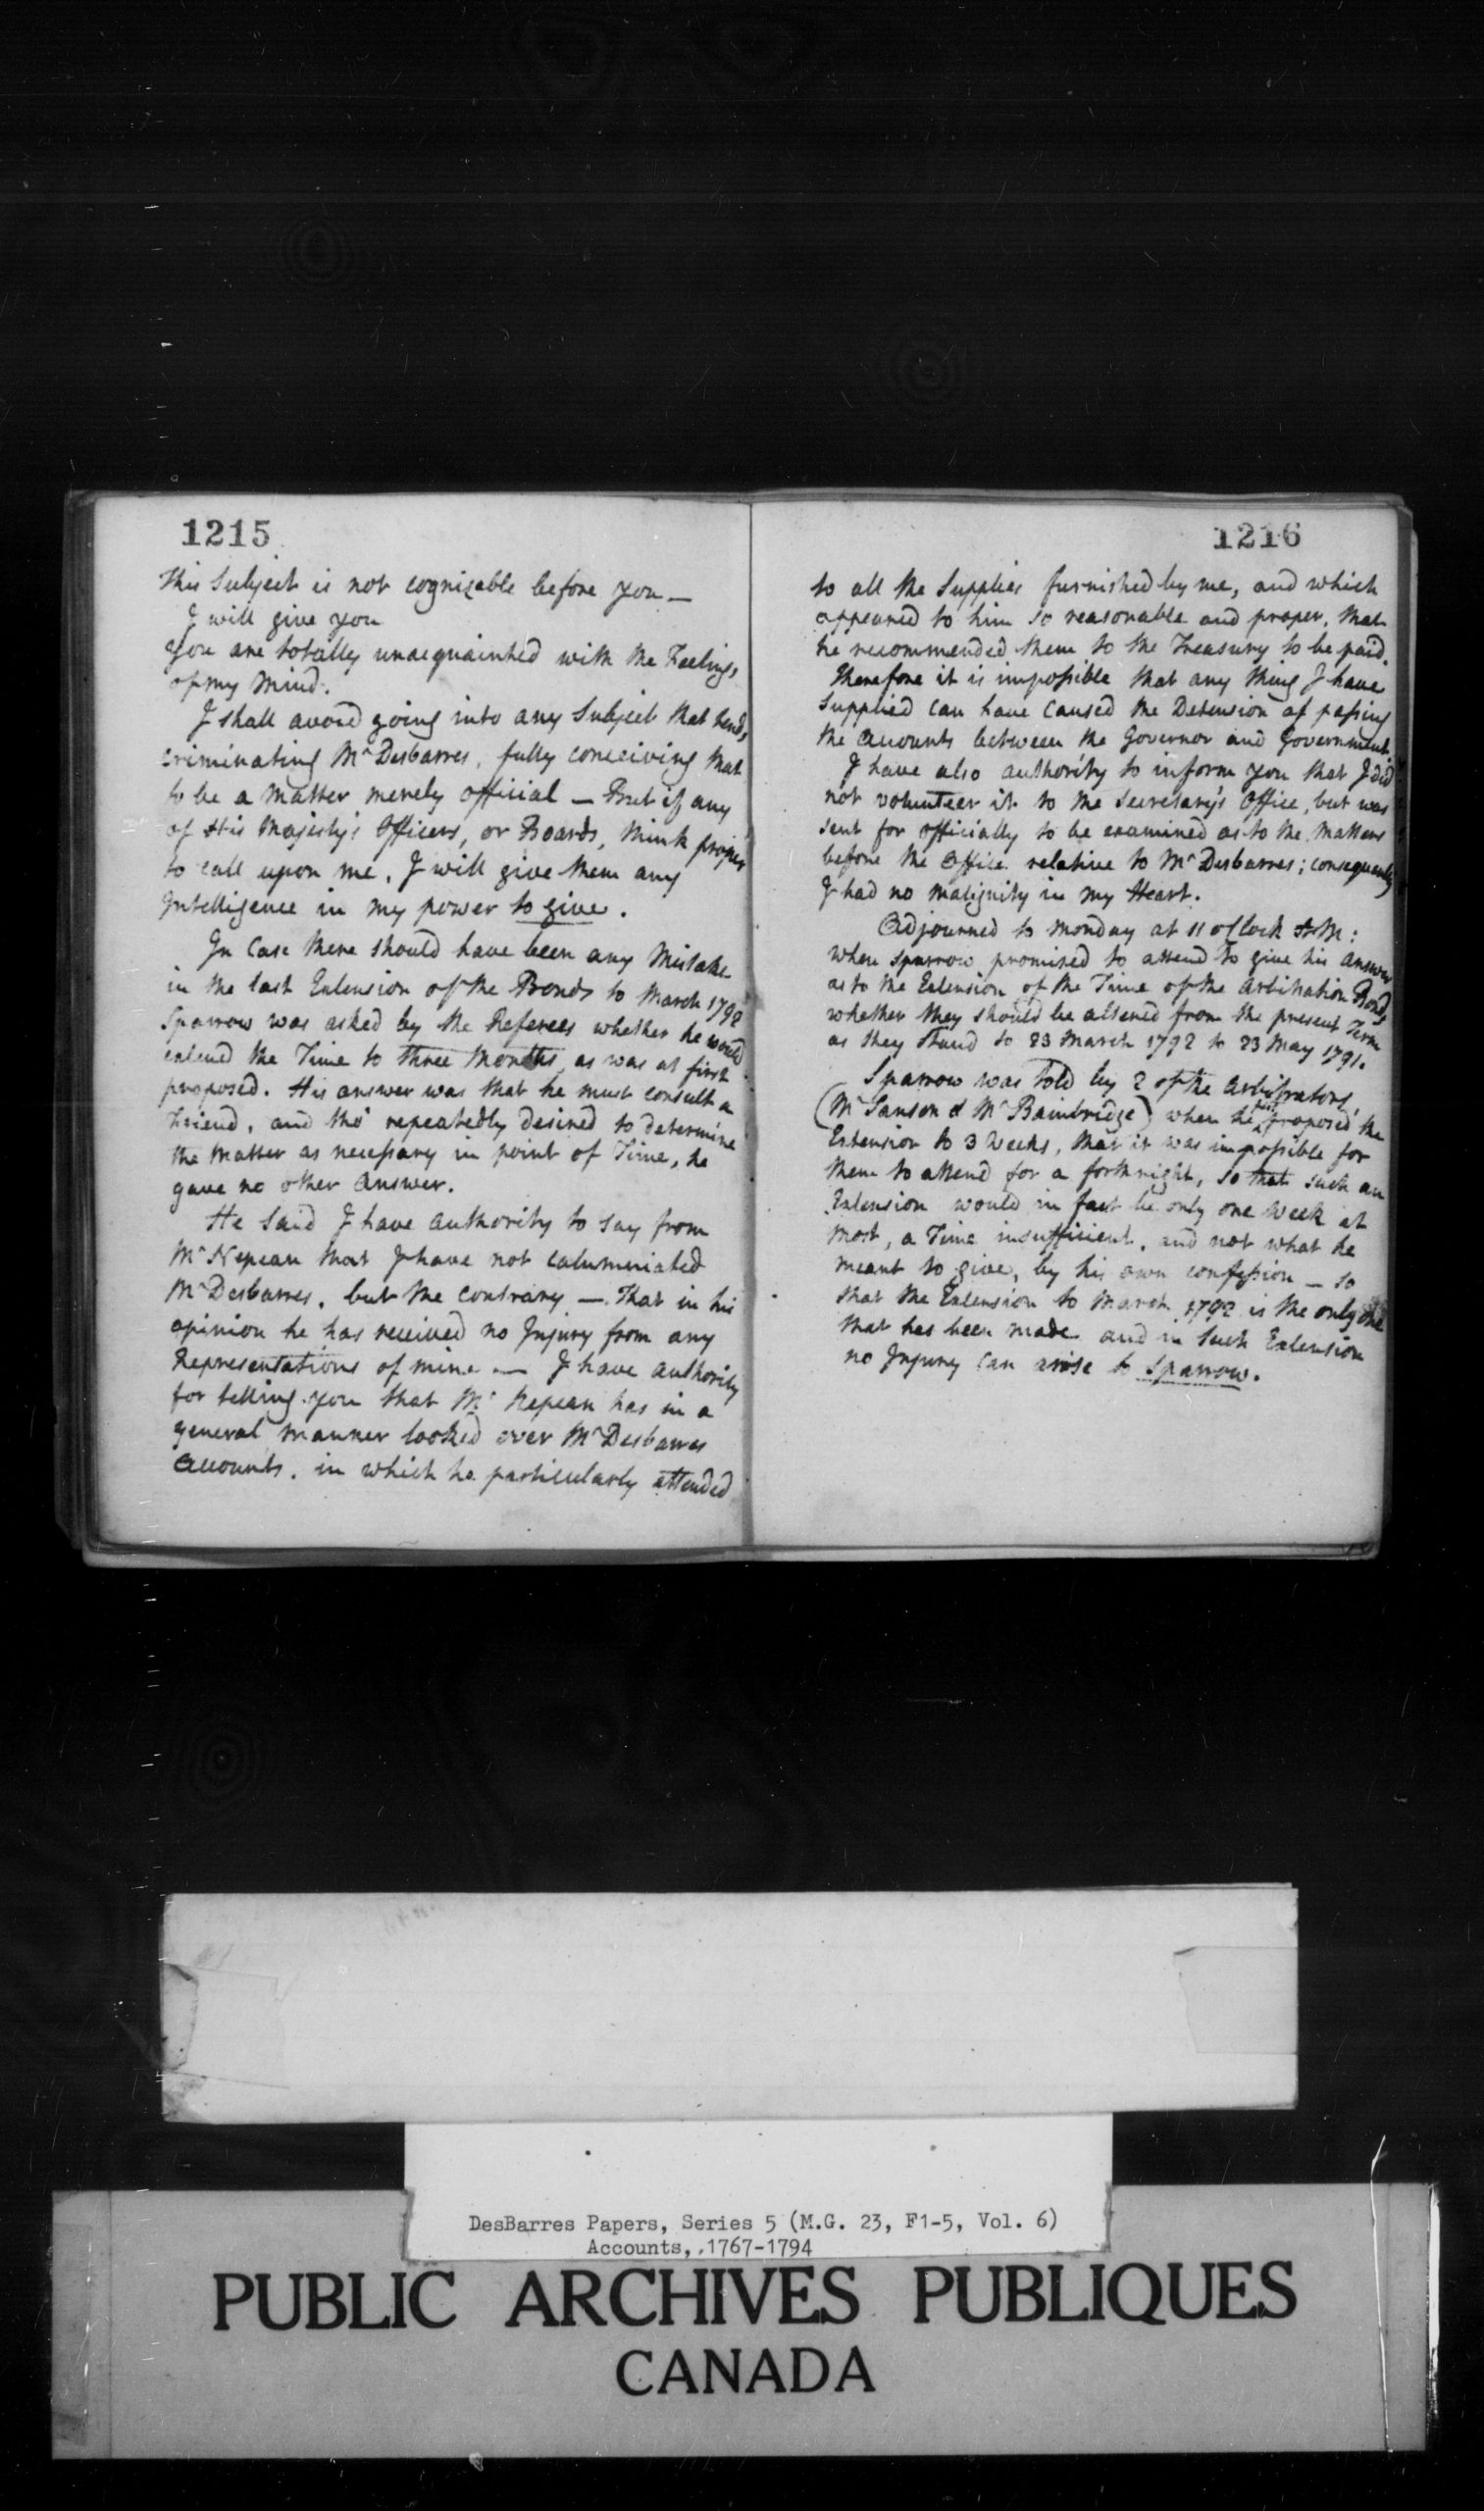 1215
This Subject is not cognizable before you —
I will give you
You are totally unacquainted with the Feelings
of my Mind.
I shall avoid going into any Subject that tends
criminating Mr Desbarres, fully conceiving that
to be a Matter merely official — But if any
of His Majesty's Officers, or Boards, think proper
to call upon me, I will give them any
Intelligence in my power to give.
In Case there should have been any Mistake
in the last Extension of the Bonds to March 1792
Sparrow was asked by the Referees whether he would
extend the Time to three Months, as was at first
proposed. His answer was that he must consult a
Friend, and tho' repeatedly desired to determine
the Matter as necessary in point of Time, he
gave no other Answer.
He said I have Authority to say from
Mr Nepean that I have not calumniated
Mr Desbarres, but the contrary — That in his
opinion he has received no Injury from any
Representations of mine — I have authority
for telling you that Mr Nepean has in a
general manner looked over Mr Desbarres
Accounts, in which he particularly attended
1216
to all the Supplies furnished by me, and which
appeared to him so reasonable and proper, that
he recommended them to the Treasury to be paid.
Therefore it is impossible that any thing I have
supplied can have caused the Detension of passing
the Accounts between the Governor and Government.
I have also authority to inform you that I did
not volunteer it to the Secretary's Office, but was
sent for officially to be examined as to the Matters
before the Office relative to Mr Desbarres; consequently
I had no malignity in my Heart.
Adjourned to Monday at 11 o'Clock A M:
when Sparrow promised to attend to give his answer
as to the Extension of the Time of the Arbitration Bonds
whether they should be altered from the present Term
as they stand to 23 March 1792 to 23 May 1791.
Sparrow was told by 2 of the Arbitrators,
(Mr Sanson & Mr Bainbridge) when he first proposed the
Extension to 3 Weeks, that it was impossible for
them to attend for a forthnight, so that such an
Extension would in fact be only one Week at
most, a Time insufficient, and not what he
meant to give, by his own confession — so
that the Extension to March 1792 is the only one
that has been made and in such Extension
no Injury can arise to Sparrow.
DesBarres Papers, Series 5 (M.G. 23, F1-5, Vol. 6)
Accounts, 1767-1794
PUBLIC ARCHIVES PUBLIQUES
CANADA